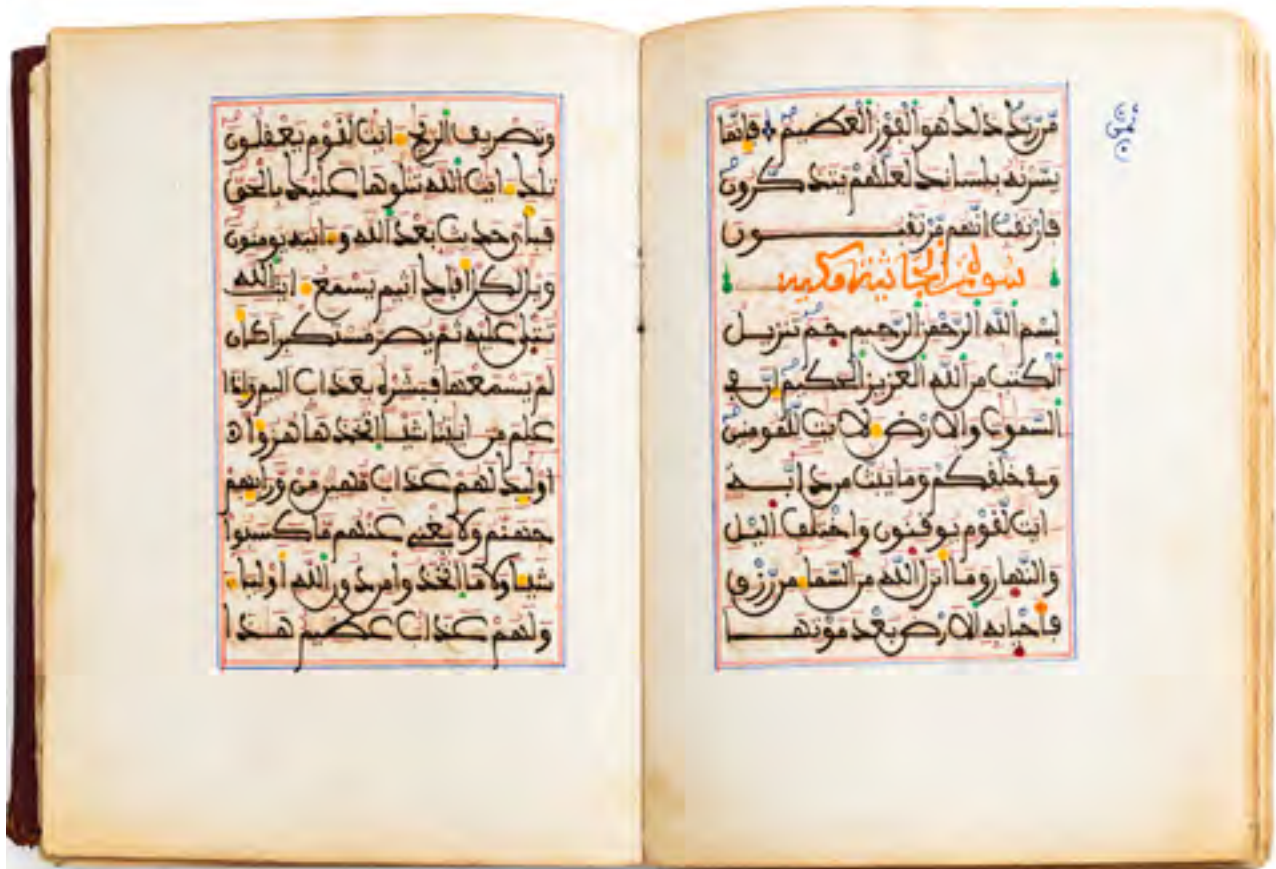 من ربك ذلك هو الفوز العظيم فإنما
يسرنه بلسانك لعلهم يتذكرون
فارتقب انهم مرتقبون
سورة الجاثية مكية
بسم الله الرحمن الرحيم حم تنزيل
الكتب من الله العزيز الحكيم ان في
السموت والارض لايت للمومنين
وفي خلقكم وما يبث من دابة
ايت لقوم يوقنون واختلف اليل
والنهار وما انزل الله من السما من رزق
فاحيا به الارض بعد موتها
وتصريف الريح ايت لقوم يعقلون
تلك ايت الله نتلوها عليك بالحق
فباي حديث بعد الله وايته يومنون
ويل لكل افاك اثيم يسمع ايت الله
تتلى عليه ثم يصر مستكبرا كان
لم يسمعها فبشره بعذاب اليم واذا
علم من ايتنا شيا اتخذها هزوا ا
وليك لهم عذاب مهين من ورايهم
جهنم ولا يغني عنهم ما كسبوا
شيا ولا ما اتخذوا من دون الله اوليا
ولهم عذاب عظيم هذا